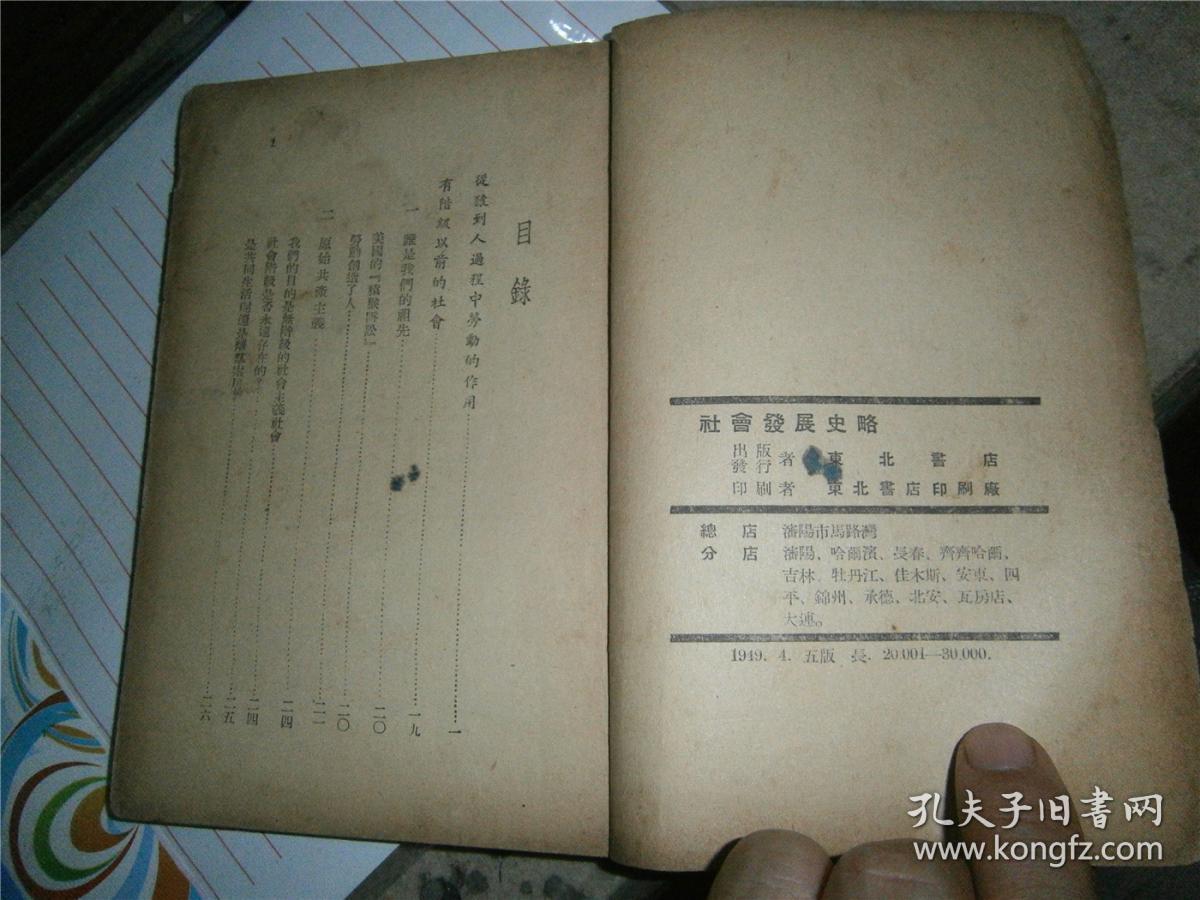 社會發展史略
出版
發行者 東北書店
印刷者 東北書店印刷廠
總店 瀋陽市馬路灣
分店 瀋陽、哈爾濱、長春、齊齊哈爾、
吉林、牡丹江、佳木斯、安東、四
平、錦州、承德、北安、瓦房店、
大連。
1949. 4. 五版 長. 20.001—30.000.
目錄
從猿到人過程中勞動的作用……一
有階級以前的社會……一九
一 誰是我們的祖先……二〇
美國的『猿猴訴訟』……二〇
勞動創造了人……二二
二 原始共產主義……二四
我們的目的是無階級的社會主義社會……二四
社會階級是否永遠存在的？……二五
是共同生活呢還是離羣索居……二六
孔夫子旧书网
www.kongfz.com